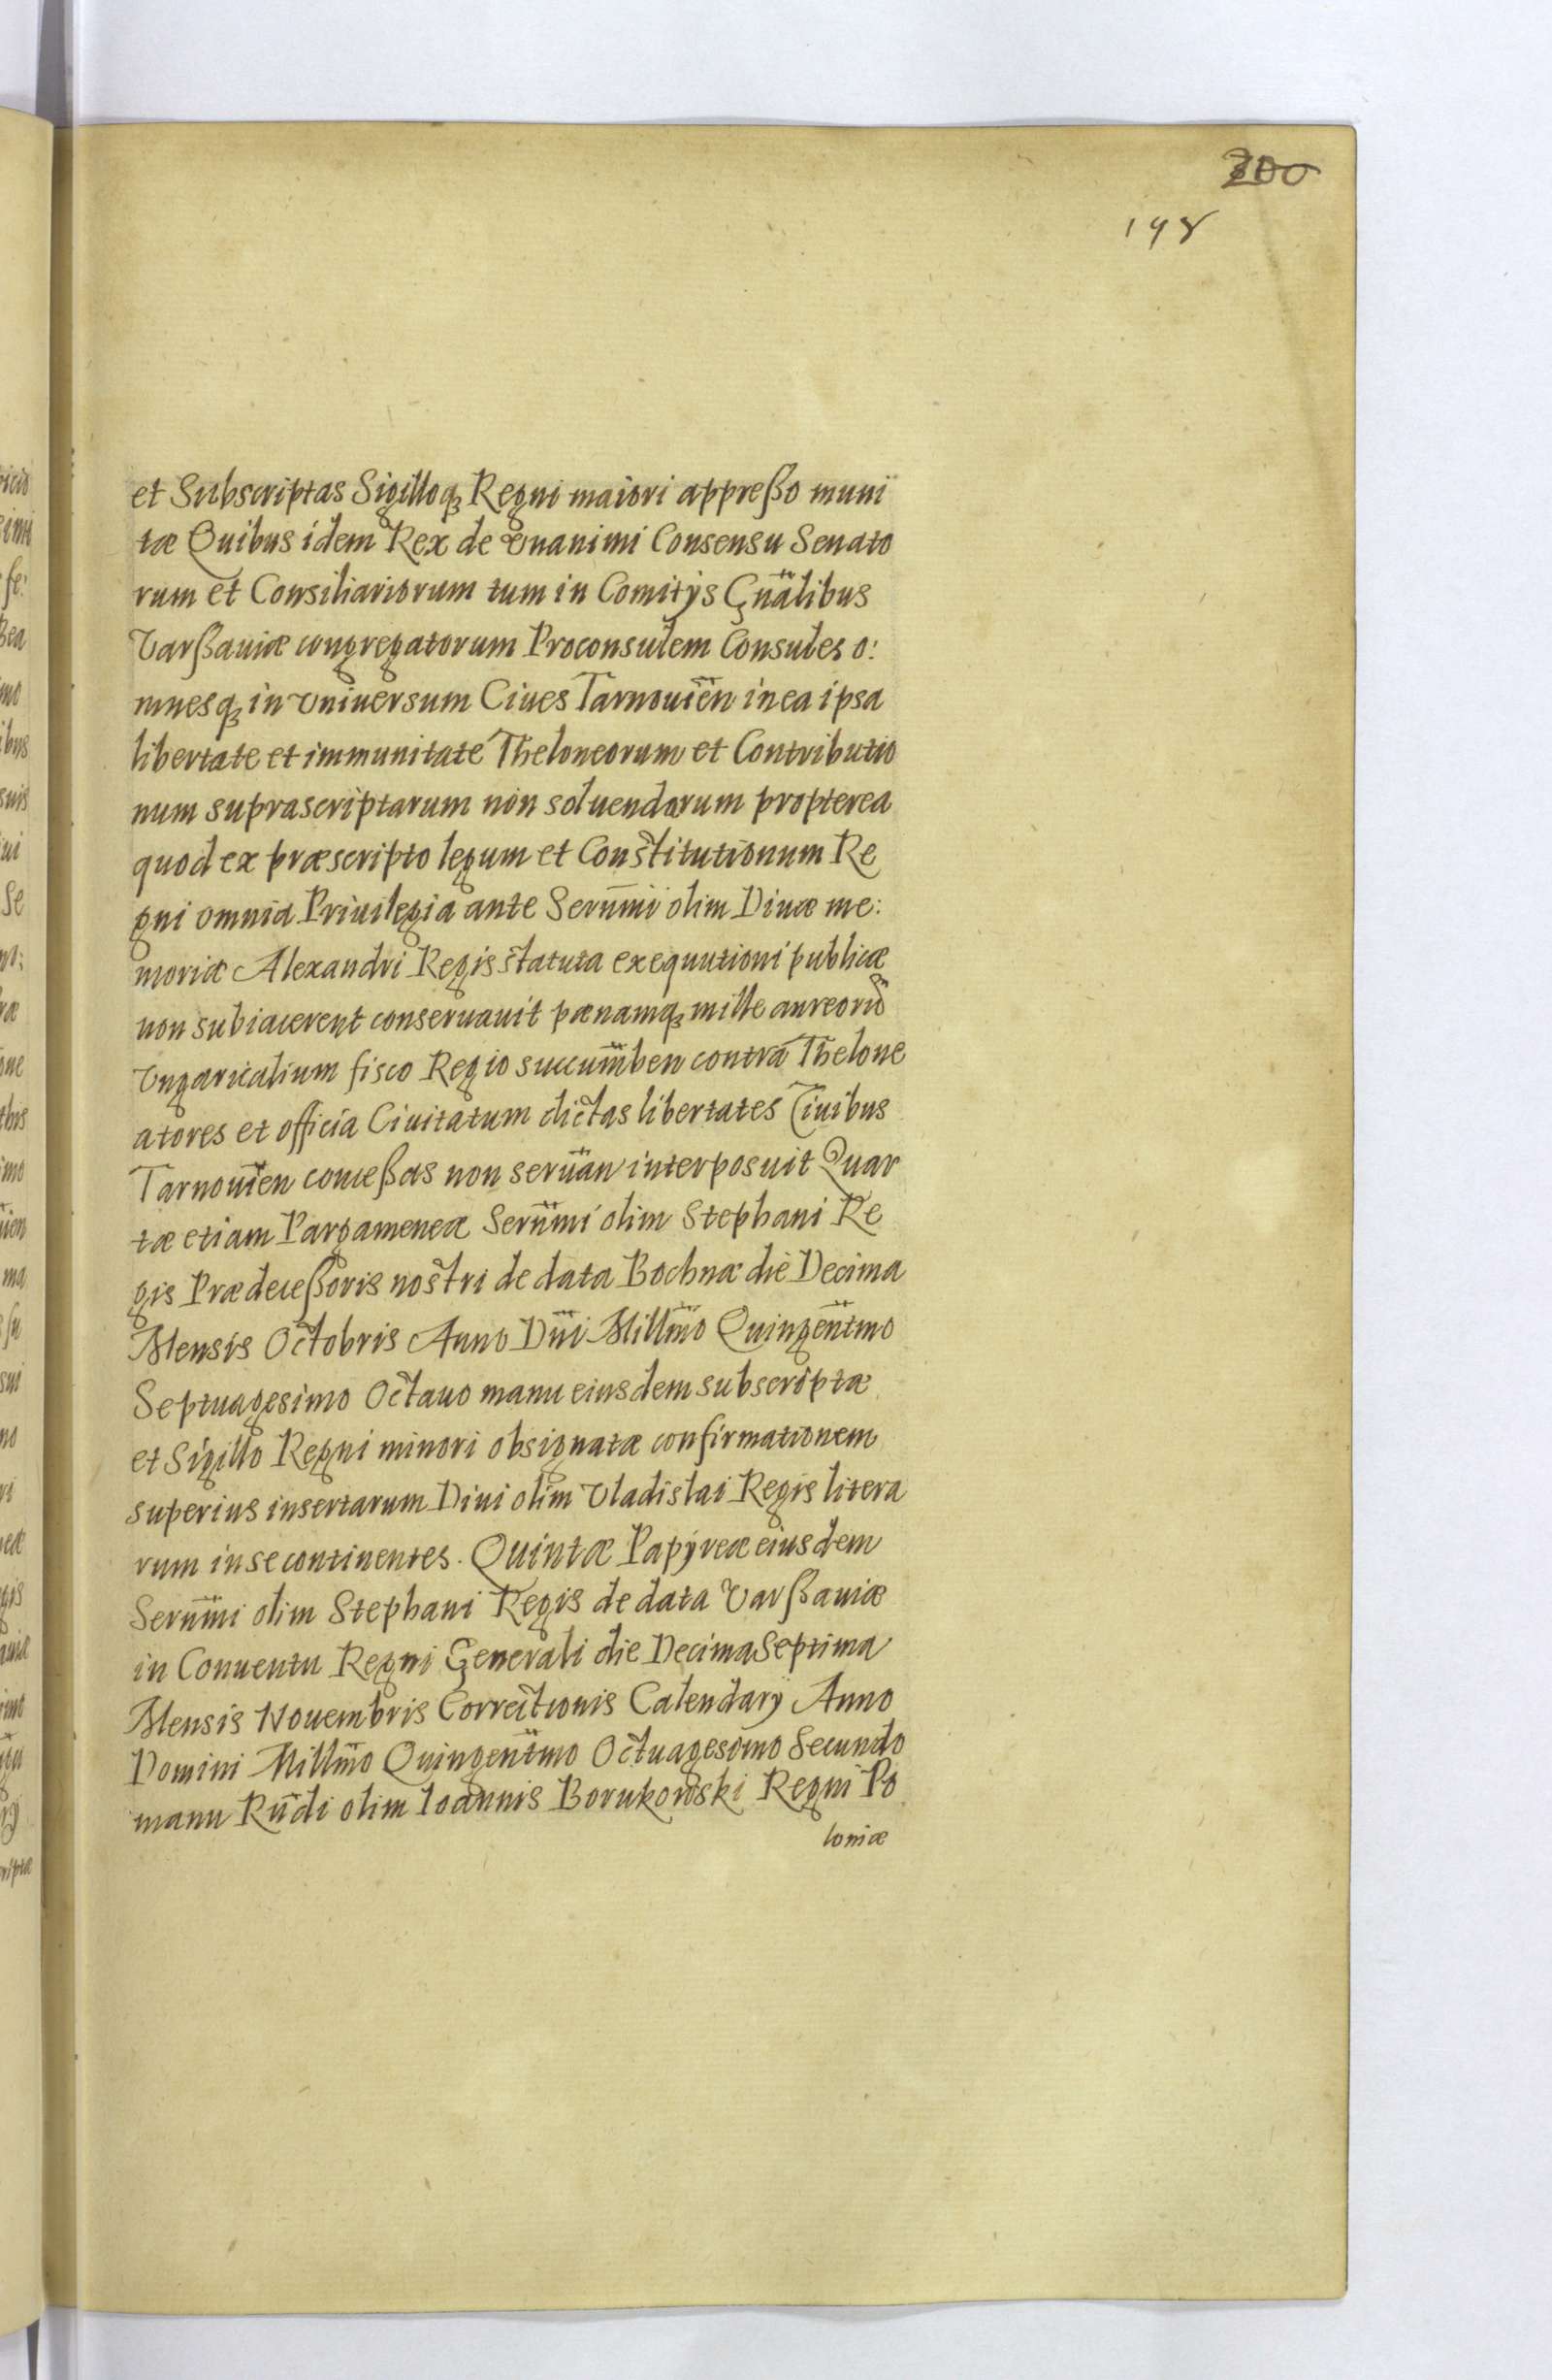 200
198
et Subscriptas Sigilloq₃ Regni maiori appreßo muni
tæ Quibus idem Rex de vnanimi Consensu Senato
rum et Consiliariorum tum in Comitÿs Gn̄alibus
Varßauiæ congregatorum Proconsulem Consules o:
mnesq₃ in vniuersum Ciues Tarnouien̄ in ea ipsa
libertate et immunitate Theloneorum et Contributio
num suprascriptarum non soluendarum propterea
quod ex præscripto legum et Constitutionum Re
gni omnia Priuilegia ante Serēn̄mi olim Diuæ me:
moriæ Alexandri Regis statuta exequutioni publicæ
non subiacerent conseruauit pænamq₃ mille aureorū
Vngaricalium fisco Regio succumben̄ contra Thelone
atores et officia Ciuitatum dictas libertates Ciuibus
Tarnouien̄ conceßas non seruan̄ interposuit Quar
tæ etiam Pargameneæ Sern̄mi olim Stephani Re
gis Prædeceßoris nostri de data Bochnæ die Decima
Mensis Octobris Anno Dn̄i Millm̄o Quingent̄mo
Septuagesimo Octauo manu eiusdem subscriptæ
et Sigillo Regni minori obsignatæ confirmationem
superius insertarum Diui olim Vladislai Regis litera
rum in se continentes. Quintæ Papÿreæ eiusdem
Sern̄mi olim Stephani Regis de data Varßauiæ
in Conuentu Regni Generali die Decima Septima
Mensis Nouembris Correctionis Calendarÿ Anno
Domini Millm̄o Quingent̄mo Octuagesimo Secundo
manu Rn̄di olim Ioannis Borukowski Regni Po
loniæ